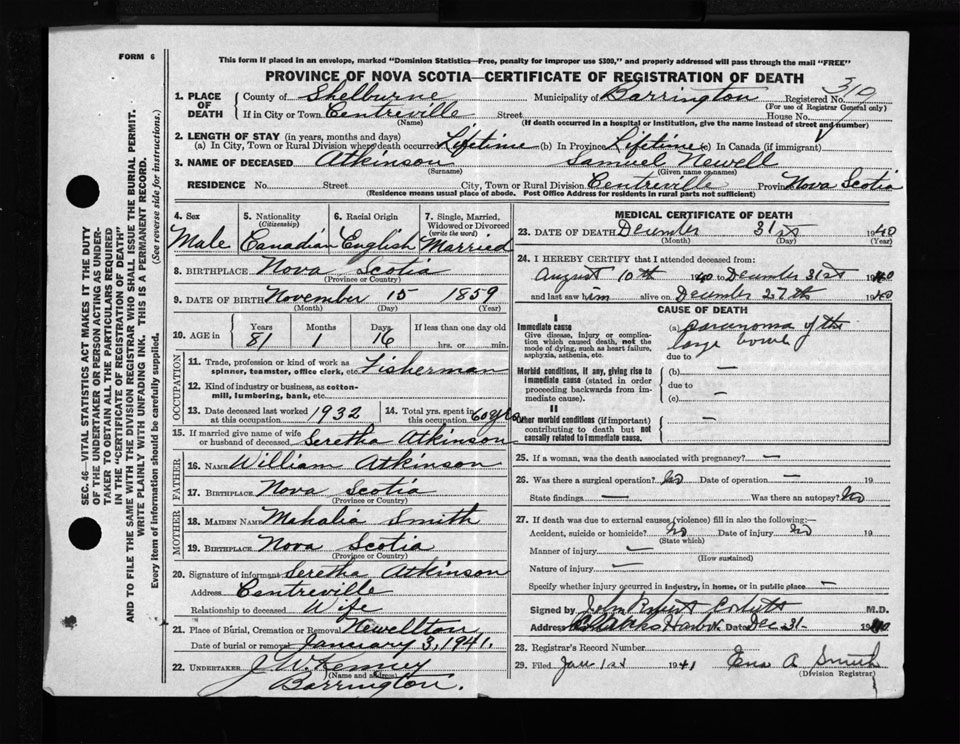 FORM 6
This form if placed in an envelope, marked "Dominion Statistics—Free, penalty for improper use $300," and properly addressed will pass through the mail "FREE"
PROVINCE OF NOVA SCOTIA—CERTIFICATE OF REGISTRATION OF DEATH
319
1. PLACE OF DEATH County of Shelburne Municipality of Barrington Registered No.
(For use of Registrar General only)
If in City or Town Centreville Street House No.
(Name) (If death occurred in a hospital or institution, give the name instead of street and number)
2. LENGTH OF STAY (in years, months and days)
(a) In City, Town or Rural Division where death occurred Lifetime (b) In Province Lifetime (c) In Canada (if immigrant)
3. NAME OF DECEASED Atkinson Samuel Newell
(Surname) (Given name or names)
RESIDENCE No. Street City, Town or Rural Division Centreville Province Nova Scotia
(Residence means usual place of abode. Post Office Address for residents in rural parts not sufficient)
4. Sex Male
5. Nationality (Citizenship) Canadian
6. Racial Origin English
7. Single, Married, Widowed or Divorced (write the word) Married
8. BIRTHPLACE Nova Scotia
(Province or Country)
9. DATE OF BIRTH November 15 1859
(Month) (Day) (Year)
10. AGE in Years 81 Months 1 Days 16 If less than one day old hrs. or min.
OCCUPATION
11. Trade, profession or kind of work as spinner, teamster, office clerk, etc. Fisherman
12. Kind of industry or business, as cotton-mill, lumbering, bank, etc.
13. Date deceased last worked at this occupation 1932
14. Total yrs. spent in this occupation 60 yrs
15. If married give name of wife or husband of deceased Seretha Atkinson
FATHER
16. NAME William Atkinson
17. BIRTHPLACE Nova Scotia
(Province or Country)
MOTHER
18. MAIDEN NAME Mahalia Smith
19. BIRTHPLACE Nova Scotia
(Province or Country)
20. Signature of informant Seretha Atkinson
Address Centreville
Relationship to deceased Wife
21. Place of Burial, Cremation or Removal Newellton
Date of burial or removal January 3, 1941.
22. UNDERTAKER J. W. Kenney
(Name and address)
Barrington.
MEDICAL CERTIFICATE OF DEATH
23. DATE OF DEATH December 31st 1940
(Month) (Day) (Year)
24. I HEREBY CERTIFY that I attended deceased from:
August 10th 1940 to December 31st 1940
and last saw him alive on December 27th 1940
CAUSE OF DEATH
I
Immediate cause
Give disease, injury or complication which caused death, not the mode of dying, such as heart failure, asphyxia, asthenia, etc.
(a) carcinoma of the
large bowel
due to
Morbid conditions, if any, giving rise to immediate cause (stated in order proceeding backwards from immediate cause).
(b) —
due to
(c) —
II
Other morbid conditions (if important) contributing to death but not causally related to immediate cause. —
25. If a woman, was the death associated with pregnancy? —
26. Was there a surgical operation? No Date of operation — 19
State findings — Was there an autopsy? No
27. If death was due to external causes (violence) fill in also the following:—
Accident, suicide or homicide? No Date of injury No 19
(State which)
Manner of injury —
(How sustained)
Nature of injury —
Specify whether injury occurred in industry, in home, or in public place —
Signed by John M.D.
Address Clarks Harbor Date Dec 31- 1940
28. Registrar's Record Number
29. Filed Jan 1st 1941 Ena A Smith
(Division Registrar)
SEC. 46—VITAL STATISTICS ACT MAKES IT THE DUTY
OF THE UNDERTAKER OR PERSON ACTING AS UNDER-
TAKER TO OBTAIN ALL THE PARTICULARS REQUIRED
IN THE "CERTIFICATE OF REGISTRATION OF DEATH"
AND TO FILE THE SAME WITH THE DIVISION REGISTRAR WHO SHALL ISSUE THE BURIAL PERMIT.
WRITE PLAINLY WITH UNFADING INK. THIS IS A PERMANENT RECORD.
Every item of information should be carefully supplied. (See reverse side for instructions.)